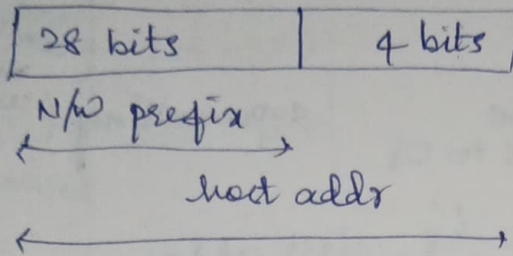 28 bits 4 bits
N/W prefix
host addr